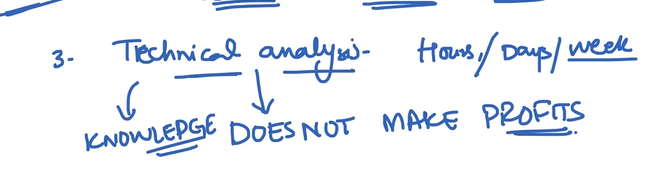 3- Technical analysis- Hours/Days/week
KNOWLEDGE DOES NOT MAKE PROFITS